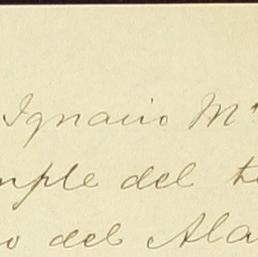 Ignacio Mª
mple del t
o del Ala